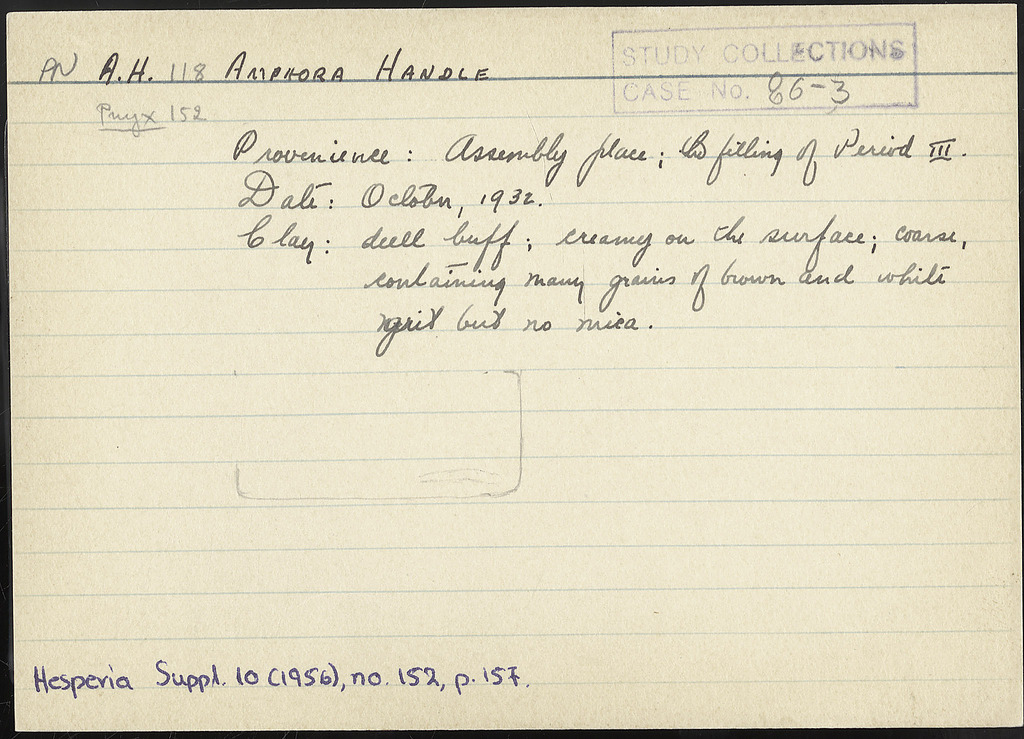 PN A.H. 118 AMPHORA HANDLE
STUDY COLLECTIONS
CASE No. 86-3
Pnyx 152
Provenience: Assembly place; filling of Period III.
Date: October, 1932.
Clay: dull buff; creamy on the surface; coarse,
containing many grains of brown and white
grit but no mica.
Hesperia Suppl. 10 (1956), no. 152, p. 157.